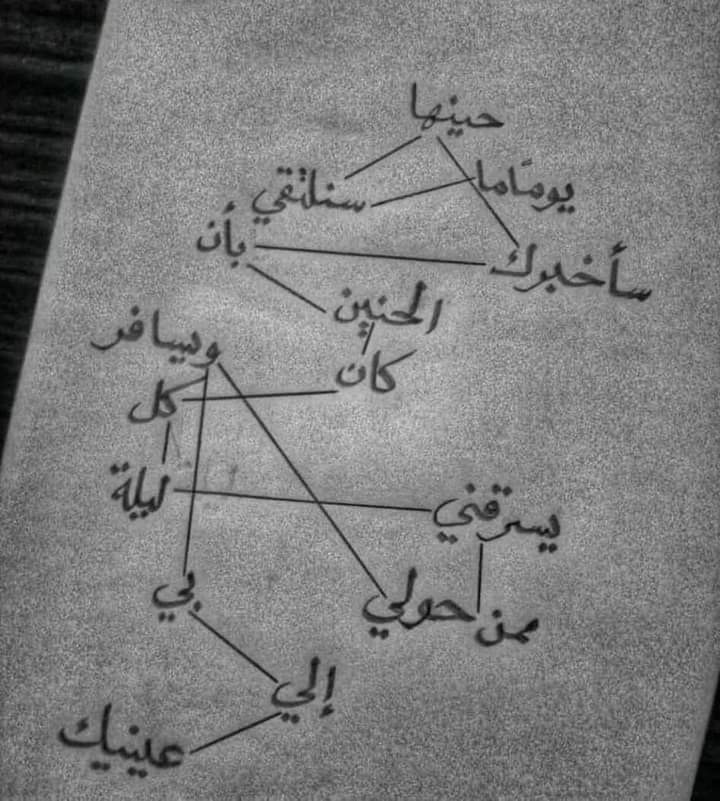 يومًا ما
سنلتقي
حينها
سأخبرك
بأن
الحنين
كان
كل
ليلة
يسرقني
من حولي
ويسافر
بي
إلي
عينيك